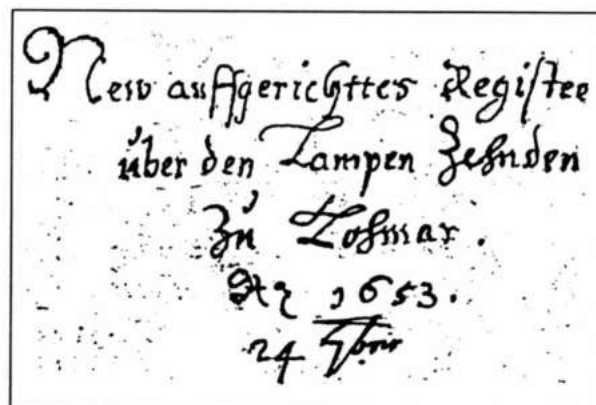 New auffgerichttes Register
über den Lampen Zehnden
Zů Lohmar.
Aõ 1653.
24 7bris